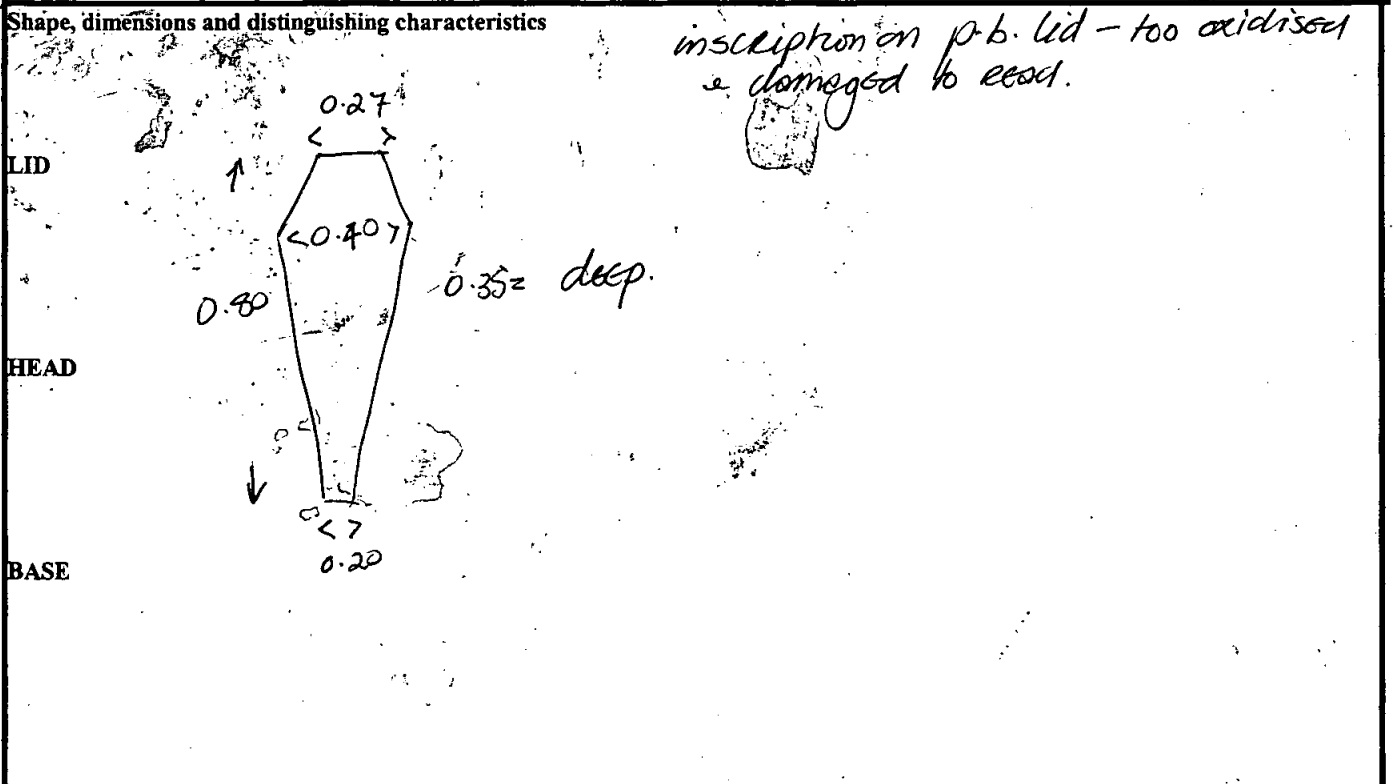 Shape, dimensions and distinguishing characteristics
inscription on p.b. lid – too oxidised
& damaged to read.
0.27
LID
<0.40>
0.35= deep.
0.80
HEAD
0.20
BASE